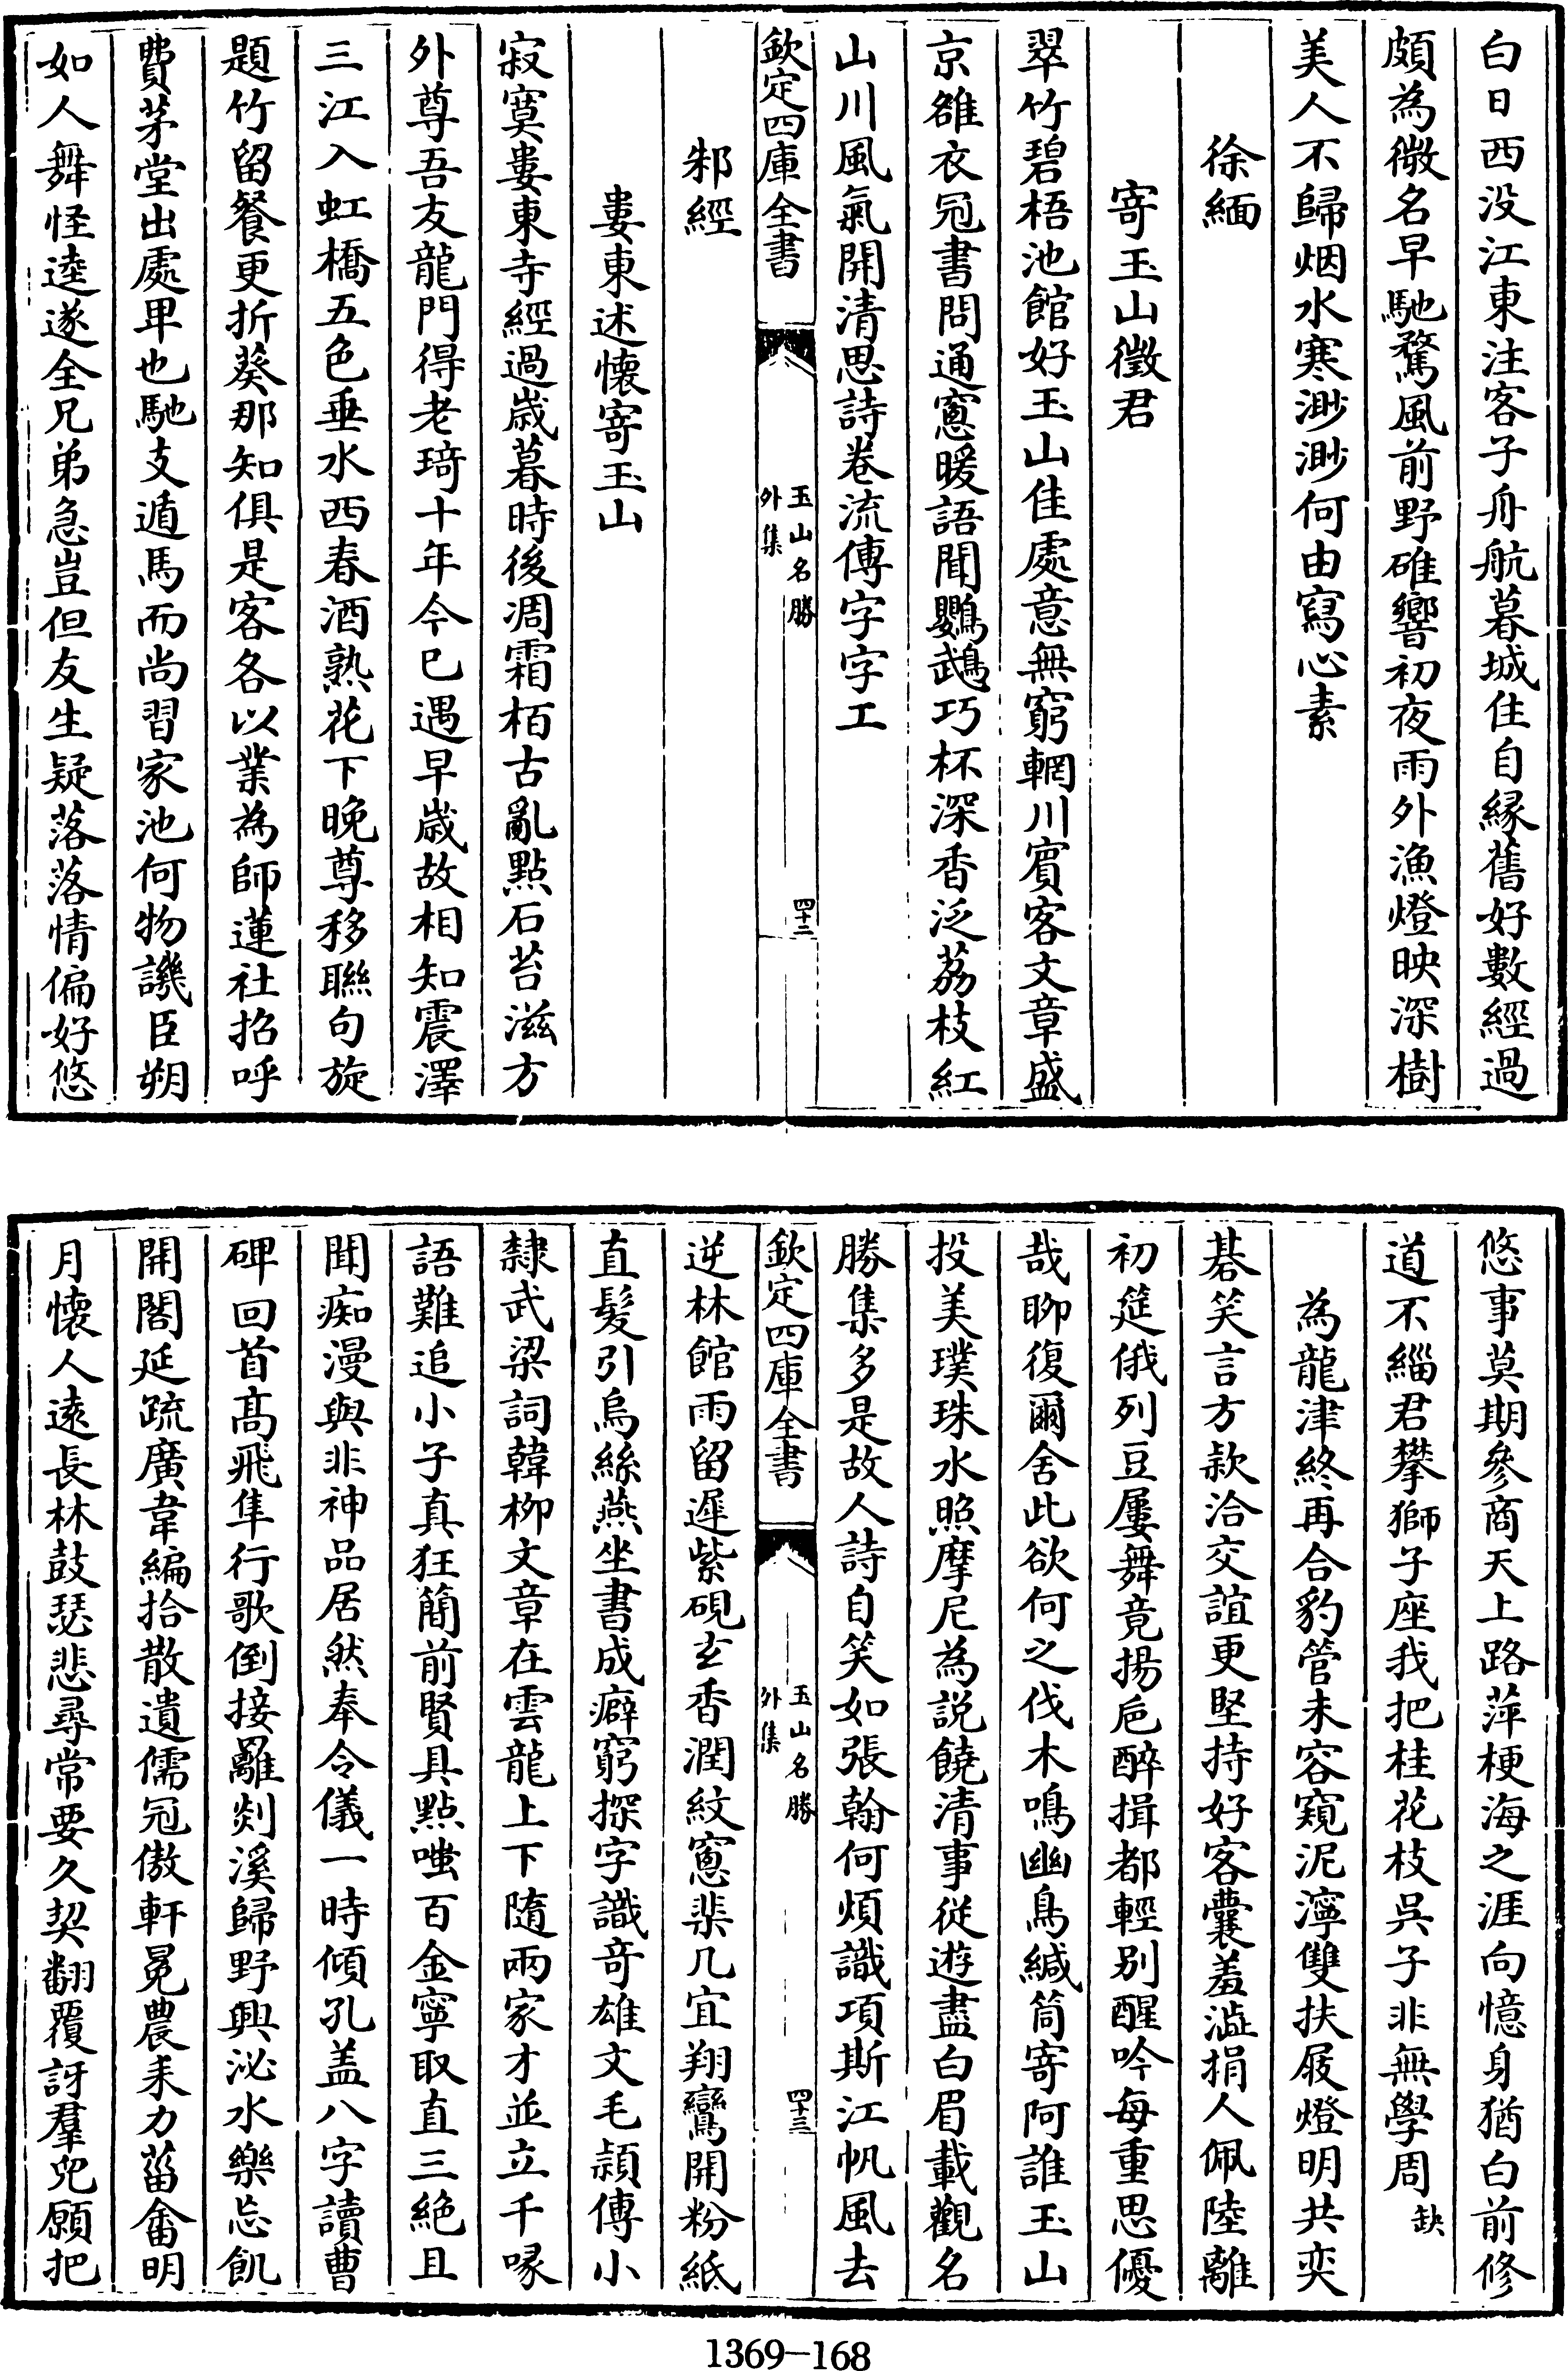 白日西没江東注客子舟航暮城住自縁舊好數經過
頗為微名早馳騖風前野碓響初夜雨外漁燈映深樹
美人不歸烟水寒渺渺何由寫心素
徐緬
寄玉山徵君
翠竹碧梧池館好玉山佳處意無窮輞川賓客文章盛
京雒衣冠書問通窻暖語聞鸚鵡巧杯深香泛荔枝紅
山川風氣開清思詩卷流傳字字工
欽定四庫全書
玉山名勝
外集
四十二
邾經
婁東述懷寄玉山
寂寞婁東寺經過歲暮時後凋霜栢古亂點石苔滋方
外尊吾友龍門得老琦十年今已遇早歲故相知震澤
三江入虹橋五色垂水西春酒熟花下晚尊移聯句旋
題竹留餐更折葵那知俱是客各以業為師蓮社招呼
費茅堂出處卑也馳支遁馬而尚習家池何物譏臣朔
如人舞怪逵遂全兄弟急豈但友生疑落落情偏好悠
悠事莫期參商天上路萍梗海之涯向憶身猶白前修
道不緇君攀獅子座我把桂花枝吳子非無學周缺
為龍津終再合豹管未容窺泥濘雙扶屐燈明共奕
碁笑言方款洽交誼更堅持好客囊羞澁捐人佩陸離
初筵俄列豆屢舞竟揚巵醉揖都輕别醒吟每重思優
哉聊復爾舍此欲何之伐木鳴幽鳥緘筒寄阿誰玉山
投美璞珠水照摩尼為説饒清事從遊盡白眉載觀名
勝集多是故人詩自笑如張翰何煩識項斯江帆風去
欽定四庫全書
玉山名勝
外集
四十三
逆林館雨留遲紫硯玄香潤紋窻棐几宜翔鸞開粉紙
直髮引烏絲燕坐書成癖窮探字識奇雄文毛頴傳小
隸武梁詞韓柳文章在雲龍上下隨兩家才並立千喙
語難追小子真狂簡前賢具點嗤百金寧取直三絕且
聞痴漫與非神品居然奉令儀一時傾孔盖八字讀曹
碑回首髙飛隼行歌倒接䍦剡溪歸野興泌水樂忘飢
開閣延疏廣韋編拾散遺儒冠傲軒冕農耒力菑畬明
月懷人遠長林鼓瑟悲尋常要久契翻覆訝羣兒願把
1369-168